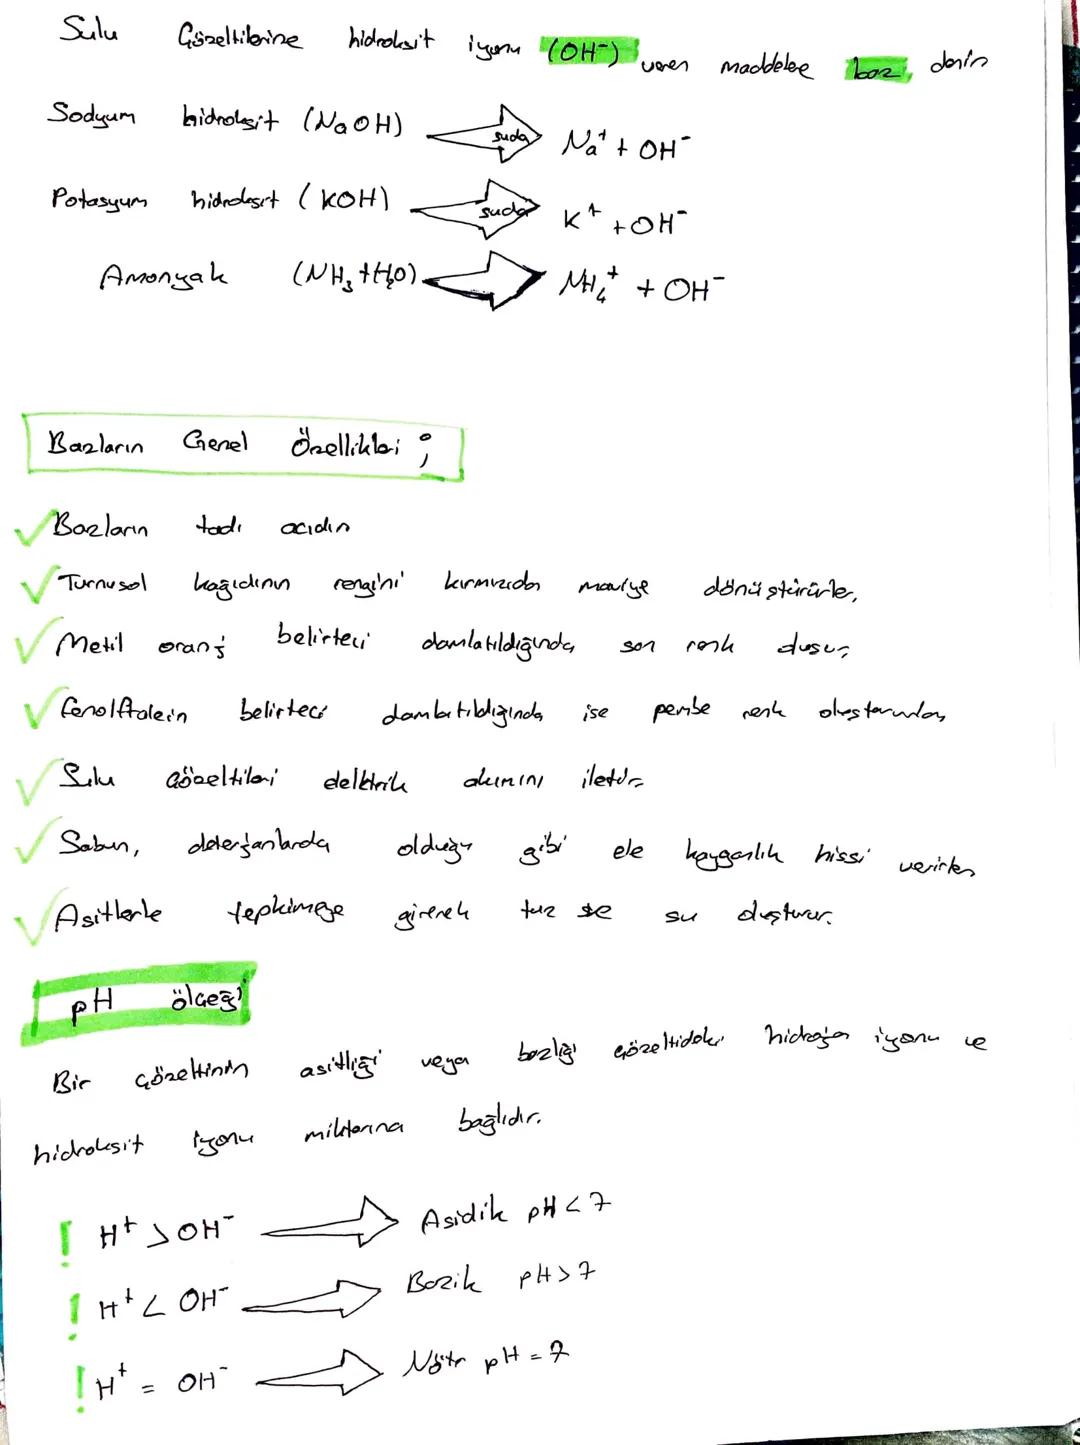 Sulu Çözeltilerine hidroksit iyonu (OH⁻) veren maddelere baz denir
Sodyum hidroksit (NaOH) suda Na⁺ + OH⁻
Potasyum hidroksit (KOH) suda K⁺ + OH⁻
Amonyak (NH₃+H₂O) NH₄⁺ + OH⁻
Bazların Genel Özellikleri ;
Bazların tadı acıdır
Turnusol kağıdının rengini kırmızıdan maviye dönüştürürler,
Metil oranj belirteci damlatıldığında sarı renk oluşur
fenolftalein belirteci damlatıldığında ise pembe renk oluştururlar
Sulu çözeltileri elektrik akımını iletir
Sabun, deterjanlarda olduğu gibi ele kayganlık hissi verirler
Asitlerle tepkimeye girerek tuz ve su oluşturur.
pH ölçeği
Bir çözeltinin asitliği veya bazlığı çözeltideki hidrojen iyonu ve
hidroksit iyonu miktarına bağlıdır.
! H⁺ > OH⁻ Asidik pH < 7
! H⁺ < OH⁻ Bazik pH > 7
! H⁺ = OH⁻ Nötr pH = 7